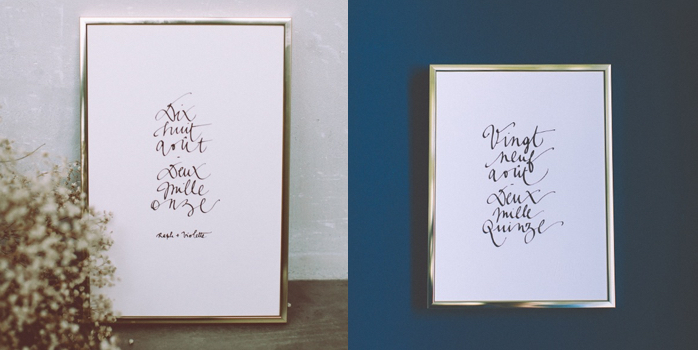 Dix
huit
août
Deux
mille
onze
Vingt
neuf
août
Deux
mille
Quinze